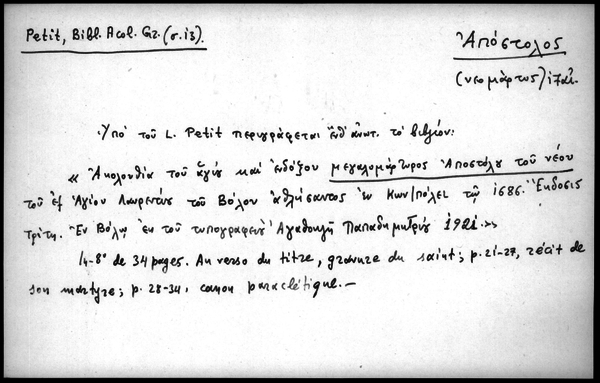 Petit, Bibl. Acol. Gr. (σ. 13).
Ἀπόστολος
(νεομάρτυς) 17αι.
Ὑπό τοῦ L. Petit περιγράφεται ἔνθ' ἀνωτ. τό βιβλίον:
« Ἀκολουθία τοῦ ἁγίου καί ἐνδόξου μεγαλομάρτυρος Ἀποστόλου τοῦ νέου
τοῦ ἐξ Ἁγίου Λαυρεντίου τοῦ Βόλου ἀθλήσαντος ἐν Κων/πόλει τῷ 1686. Ἔκδοσις
τρίτη. Ἐν Βόλῳ ἐκ τοῦ τυπογραφείου Ἀγαθοκλῆ Παπαδημητρίου 1921.»
In-8° de 34 pages. Au verso du titre, gravure du saint; p. 21-27, récit de
son martyre; p. 28-34, canon paraclétique.—